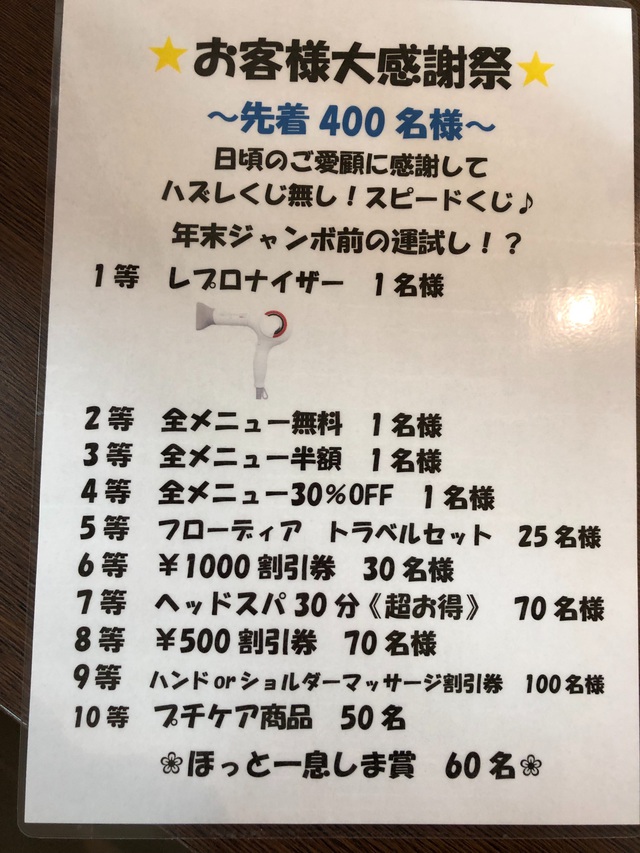 ★お客様大感謝祭★
～先着400名様～
日頃のご愛顧に感謝して
ハズレくじ無し！スピードくじ♪
年末ジャンボ前の運試し！？
1等 レプロナイザー 1名様
2等 全メニュー無料 1名様
3等 全メニュー半額 1名様
4等 全メニュー30%OFF 1名様
5等 フローディア トラベルセット 25名様
6等 ￥1000割引券 30名様
7等 ヘッドスパ30分《超お得》 70名様
8等 ￥500割引券 70名様
9等 ハンドorショルダーマッサージ割引券 100名様
10等 プチケア商品 50名
❀ほっと一息しま賞 60名❀